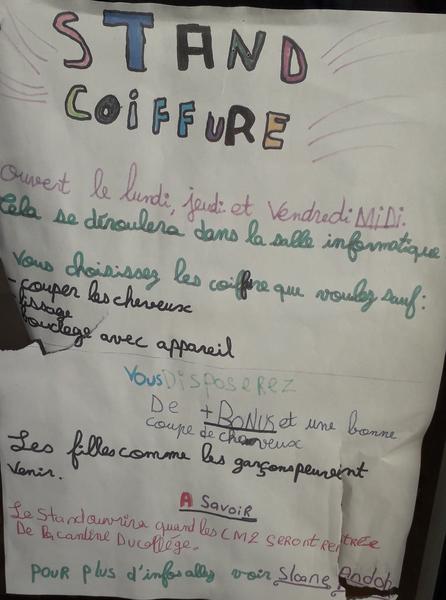 STAND
COIFFURE
ouvert le lundi, jeudi et Vendredi MiDi.
Cela se déroulera dans la salle informatique
Vous choisissez les coiffure que voulez sauf:
- couper les cheveux
lissage
bouclage avec appareil
Vous Disposerez
De + BoNUS et une bonne
coupe de cheveux
Les filles comme les garçons peuvent
venir.
A Savoir
Le Stand ouvrira quand les CM2 SERONT RENTRÉE
De la cantine Du collège.
Pour plus d'infos allez voir Sloane